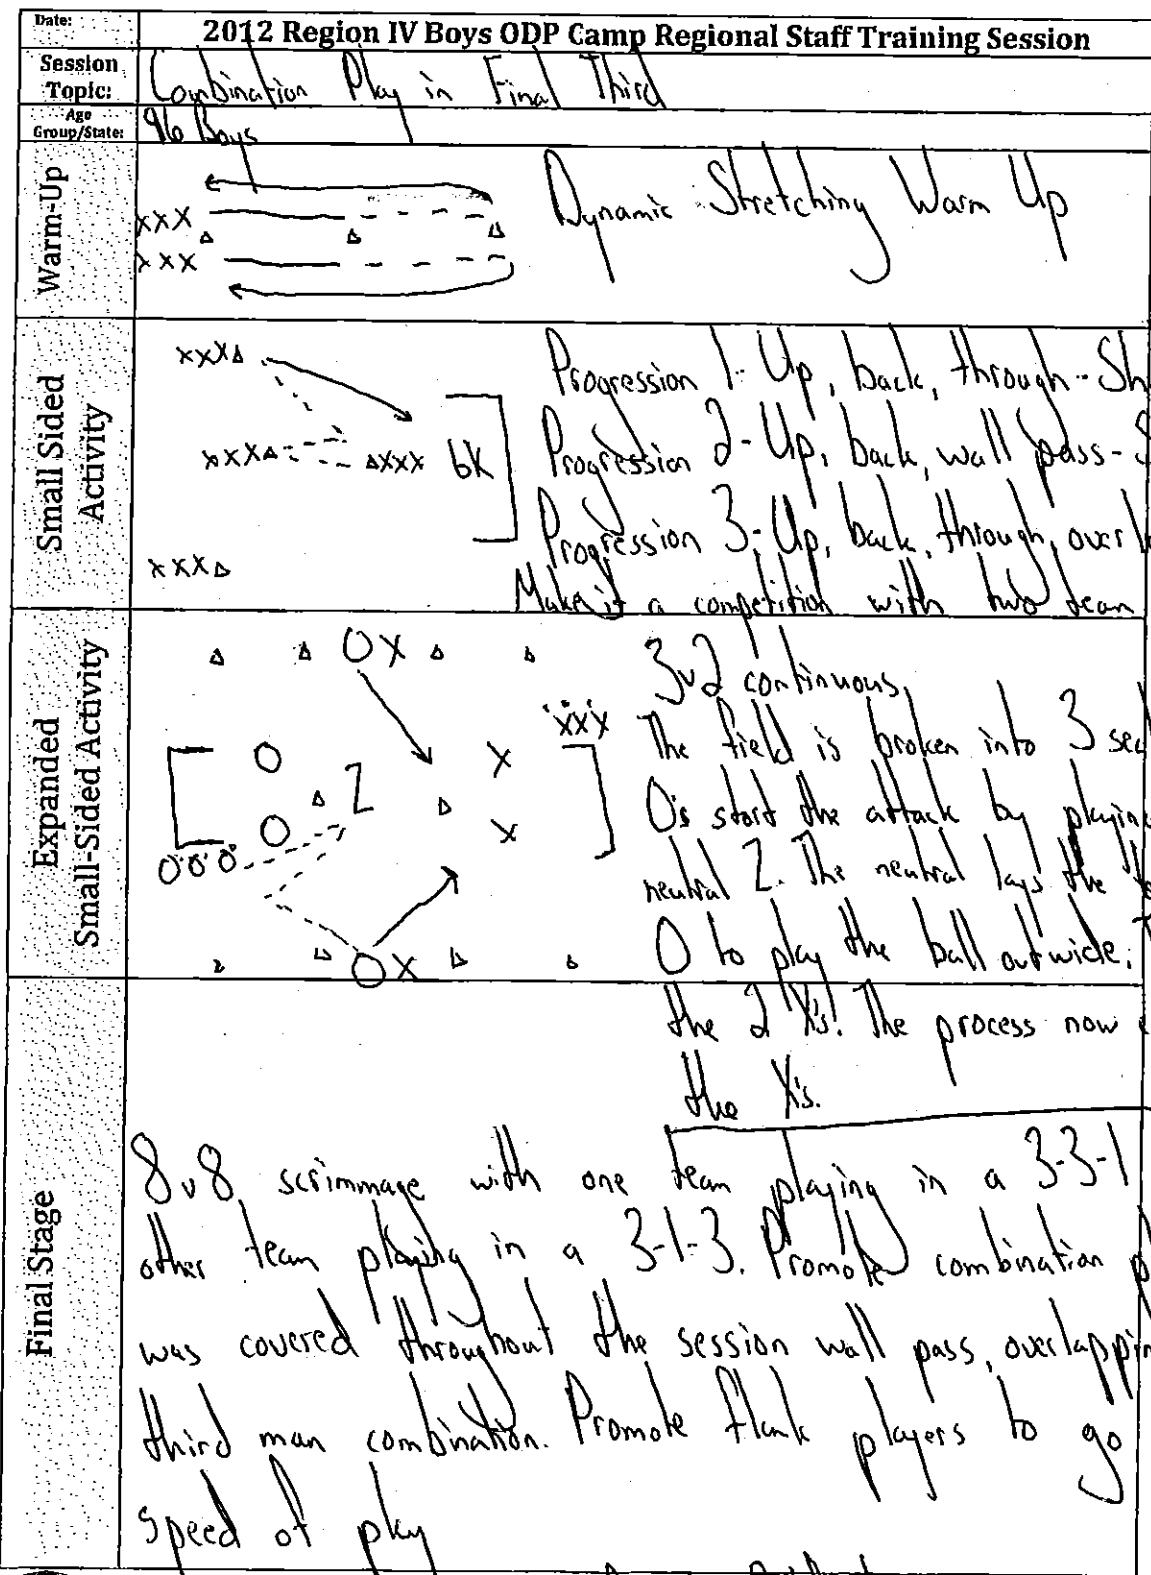 Date:
2012 Region IV Boys ODP Camp Regional Staff Training Session
Session Topic: Combination Play in Final Third
Age Group/State: 96 Boys
Warm-Up
XXX
XXX
Dynamic Stretching Warm Up
Small Sided Activity
XXX
XXX XXX GK
XXX
Progression 1- Up, back, through - Sh
Progression 2- Up, back, wall pass - S
Progression 3- Up, back, through, over
Make it a competition with two team
Expanded Small-Sided Activity
O X
XXX
O X
Z
O X
OOO
O X
3v2 continuous,
The field is broken into 3 sec
O's start the attack by playin
neutral Z. The neutral lays the
O to play the ball out wide.
the 2 X's. The process now
the X's.
Final Stage
8v8 scrimmage with one team playing in a 3-3-1
other team playing in a 3-1-3. Promote combination p
was covered throughout the session wall pass, overlappin
third man combination. Promote flank players to go
speed of play